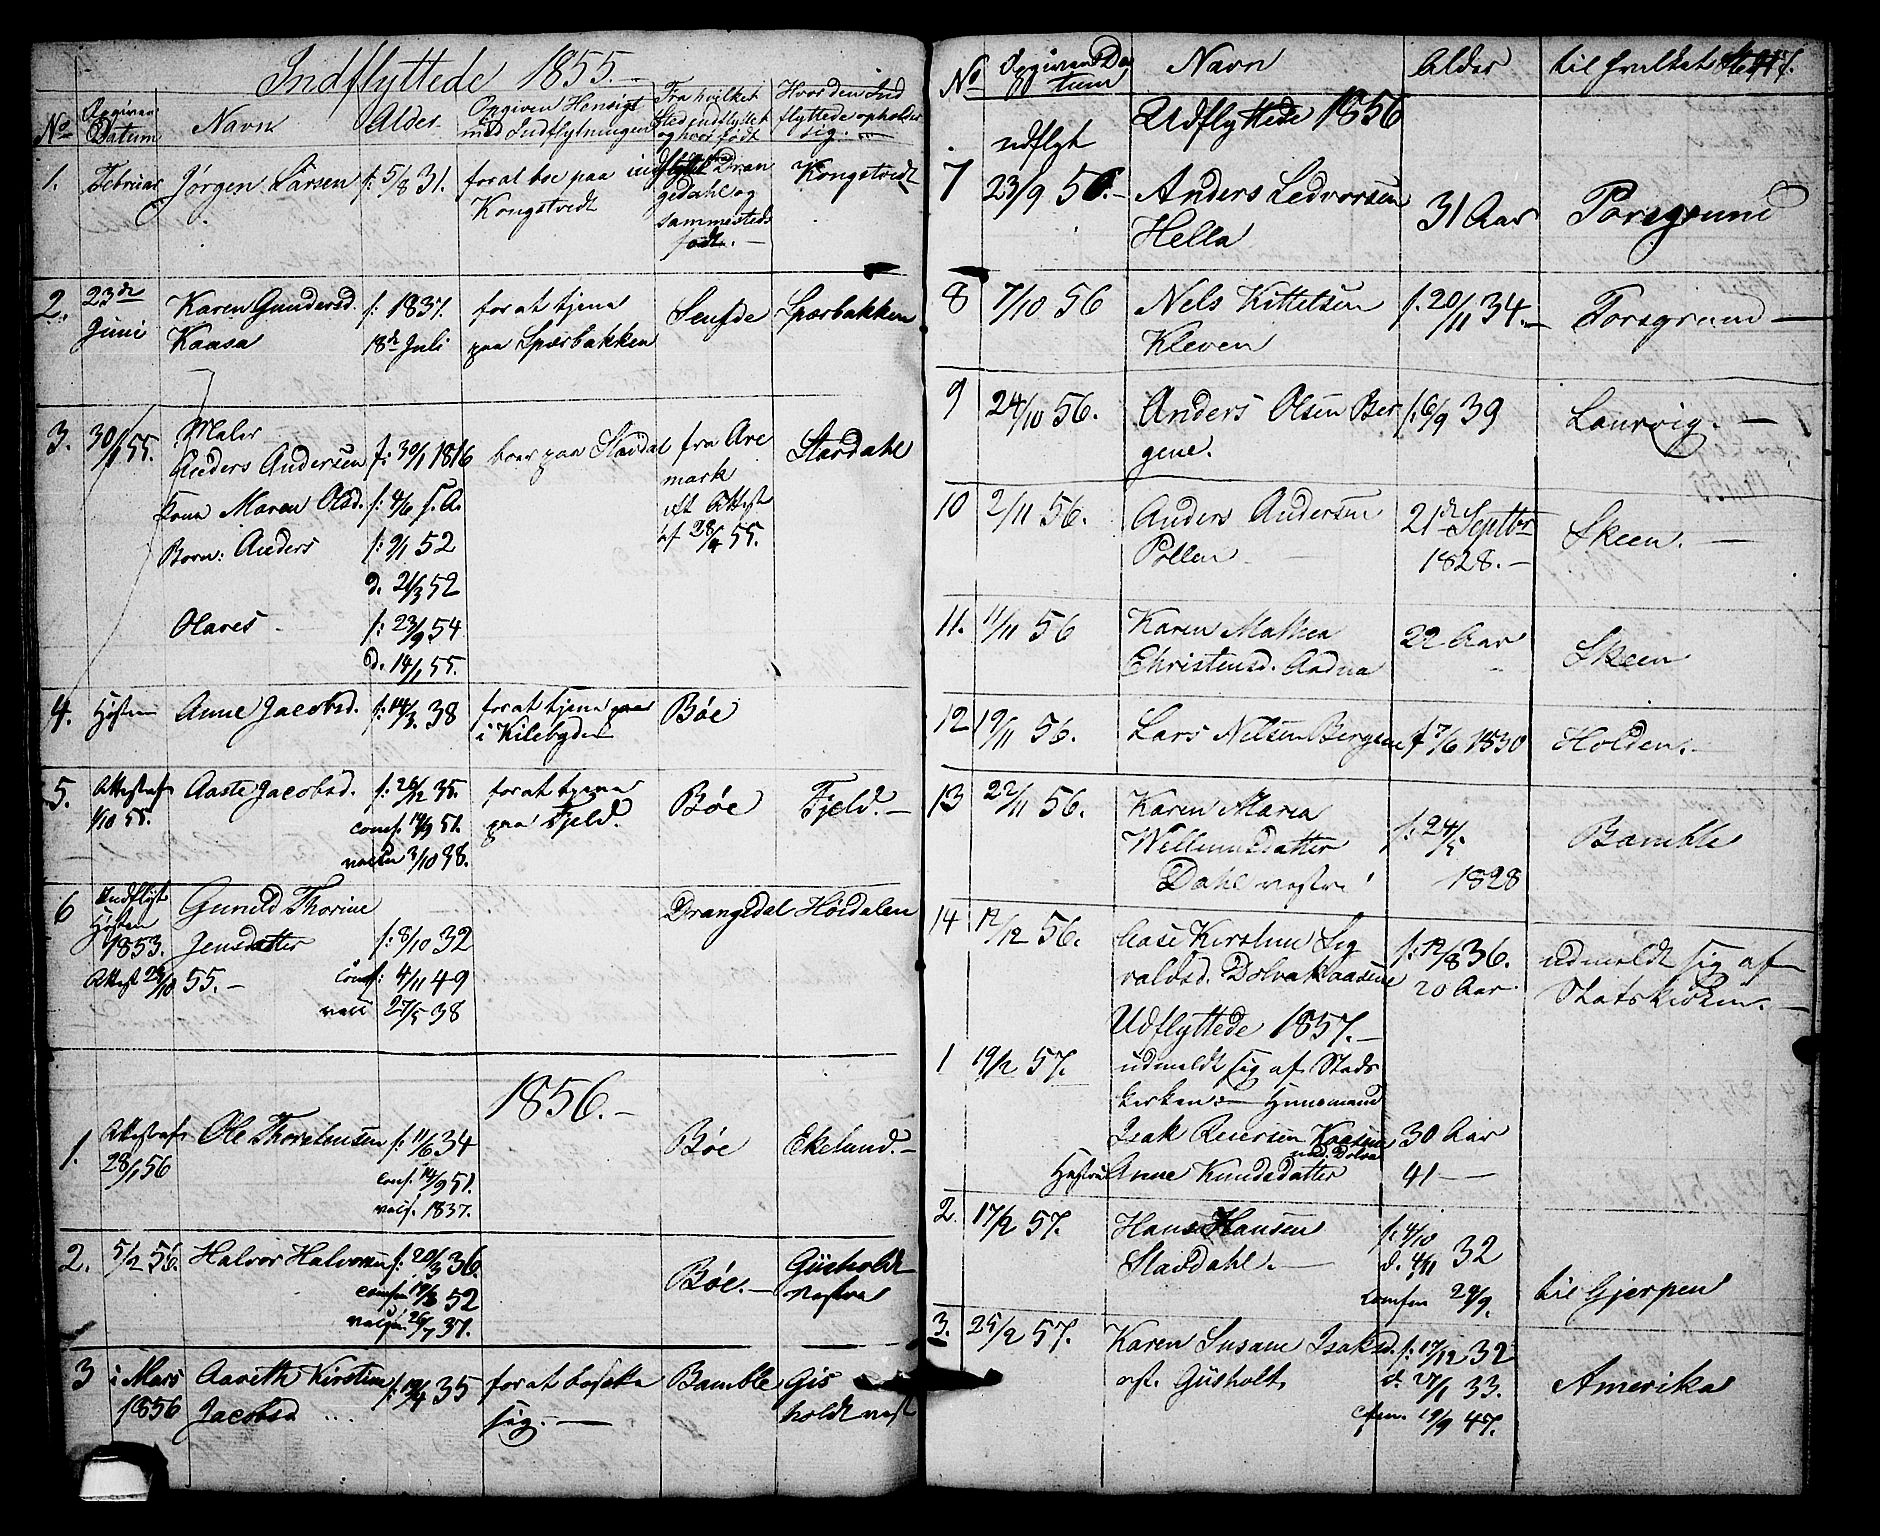 Indflyttede 1855.
No Opgiven Datum Navn Alder Opgiven Hensigt med Indflytningen Fra hvilket Sted indflyttet og hvor født Hvor den Indflyttede opholder sig.
1. Februar Jørgen Larsen f: 5/8 31. for at boe paa Kongstvedt indflyttet fra Drangedahl og sammesteds født. Kongstvedt
2. 23de Juni Karen Gundersd. Kaasa f: 1837. 18de Juli for at tjene paa Sperbakken Seufde Sperbakken
3. 30/1 55. Maler
Anders Andersen f: 30/1 1816 boer paa Stavdal fra Aremark Stavdahl
Kone Maren Olsd. f: 4/6 s. A. ift Attest
Born: Anders f: 9/1 52 af 28/4 55.
d. 21/3 52
Olaves f: 23/9 54
d. 14/1 55.
4. Høsten Anne Jacobsd. f: 14/3 38 for at tjene i Kilebygden Bøe
5. Attest af 1/10 55. Aaste Jacobsd. f: 26/12 35. for at tjene paa Fjeld. Bøe Fjeld.
conf. 14/9 51.
vacin 3/10 38.
6 Indflyt Høsten 1853. Gunild Thorine Drangedal Hoidalen
Jensdatter f: 8/10 32
Attest 29/10 55. conf: 4/11 49
vacc 27/5 38
1856.
1. Attest af 28/1 56 Ole Thorstensen f: 11/6 34 Bøe Ekelund.
conf. 14/9 51.
vacc. 1837.
2. 5/2 56. Halvor Halvorsen f: 20/3 36. Bøe. Güsholdt vestre
confn 52
vaccn 26/7 37.
3 i Mars 1856 Aareth Kirstine Jacobsd f: 19/4 35 for at bosette sig. Bamble Gisholdt vest
No Opgiven Datum Navn Alder til hvilket Sted
Udflyttede 1856
udflyt
7 23/9 56. Anders Ledvorsen Hella 31 Aar Porsgrund
8 7/10 56 Nels Kittelsen Kleven f. 20/11 34. Porsgrund
9 24/10 56. Anders Olsen Bergene. f. 6/9 39 Laurvig.
10 2/11 56. Anders Andersen Pollen 21de Septbr 1828. Skeen.
11. 11/11 56 Karen Mathea Christensd. Aadna 22 Aar Skeen
12 19/11 56. Lars Nelsen Bergene f 7/6 1830 Holden.
13 22/11 56. Karen Maria Willumsdatter Dahl vestre f: 24/5 1828 Bamble
14 12/12 56. Aase Kirstine Sigvaldsd. Dolva Kaasene f: 12/8 36. 20 Aar udmeldt sig af Statskirken.
Udflyttede 1857.
1 19/2 57. udmeldt sig af Stadskirken: Huusmand
Isak Reiersen Kaasene und. Dolva 30 Aar
Hustrue Anne Knudsdatter 41 —
2. 17/2 57. Hans Hansen Stavdahl. f. 4/10 32 til Gjerpen
d. 4/11
confen 29/9.
3. 25/2 57. Karen Susane Isaksd. f: 17/12 32 Amerika
vest. Güsholt d. 27/1 33.
cfen. 19/9 47.